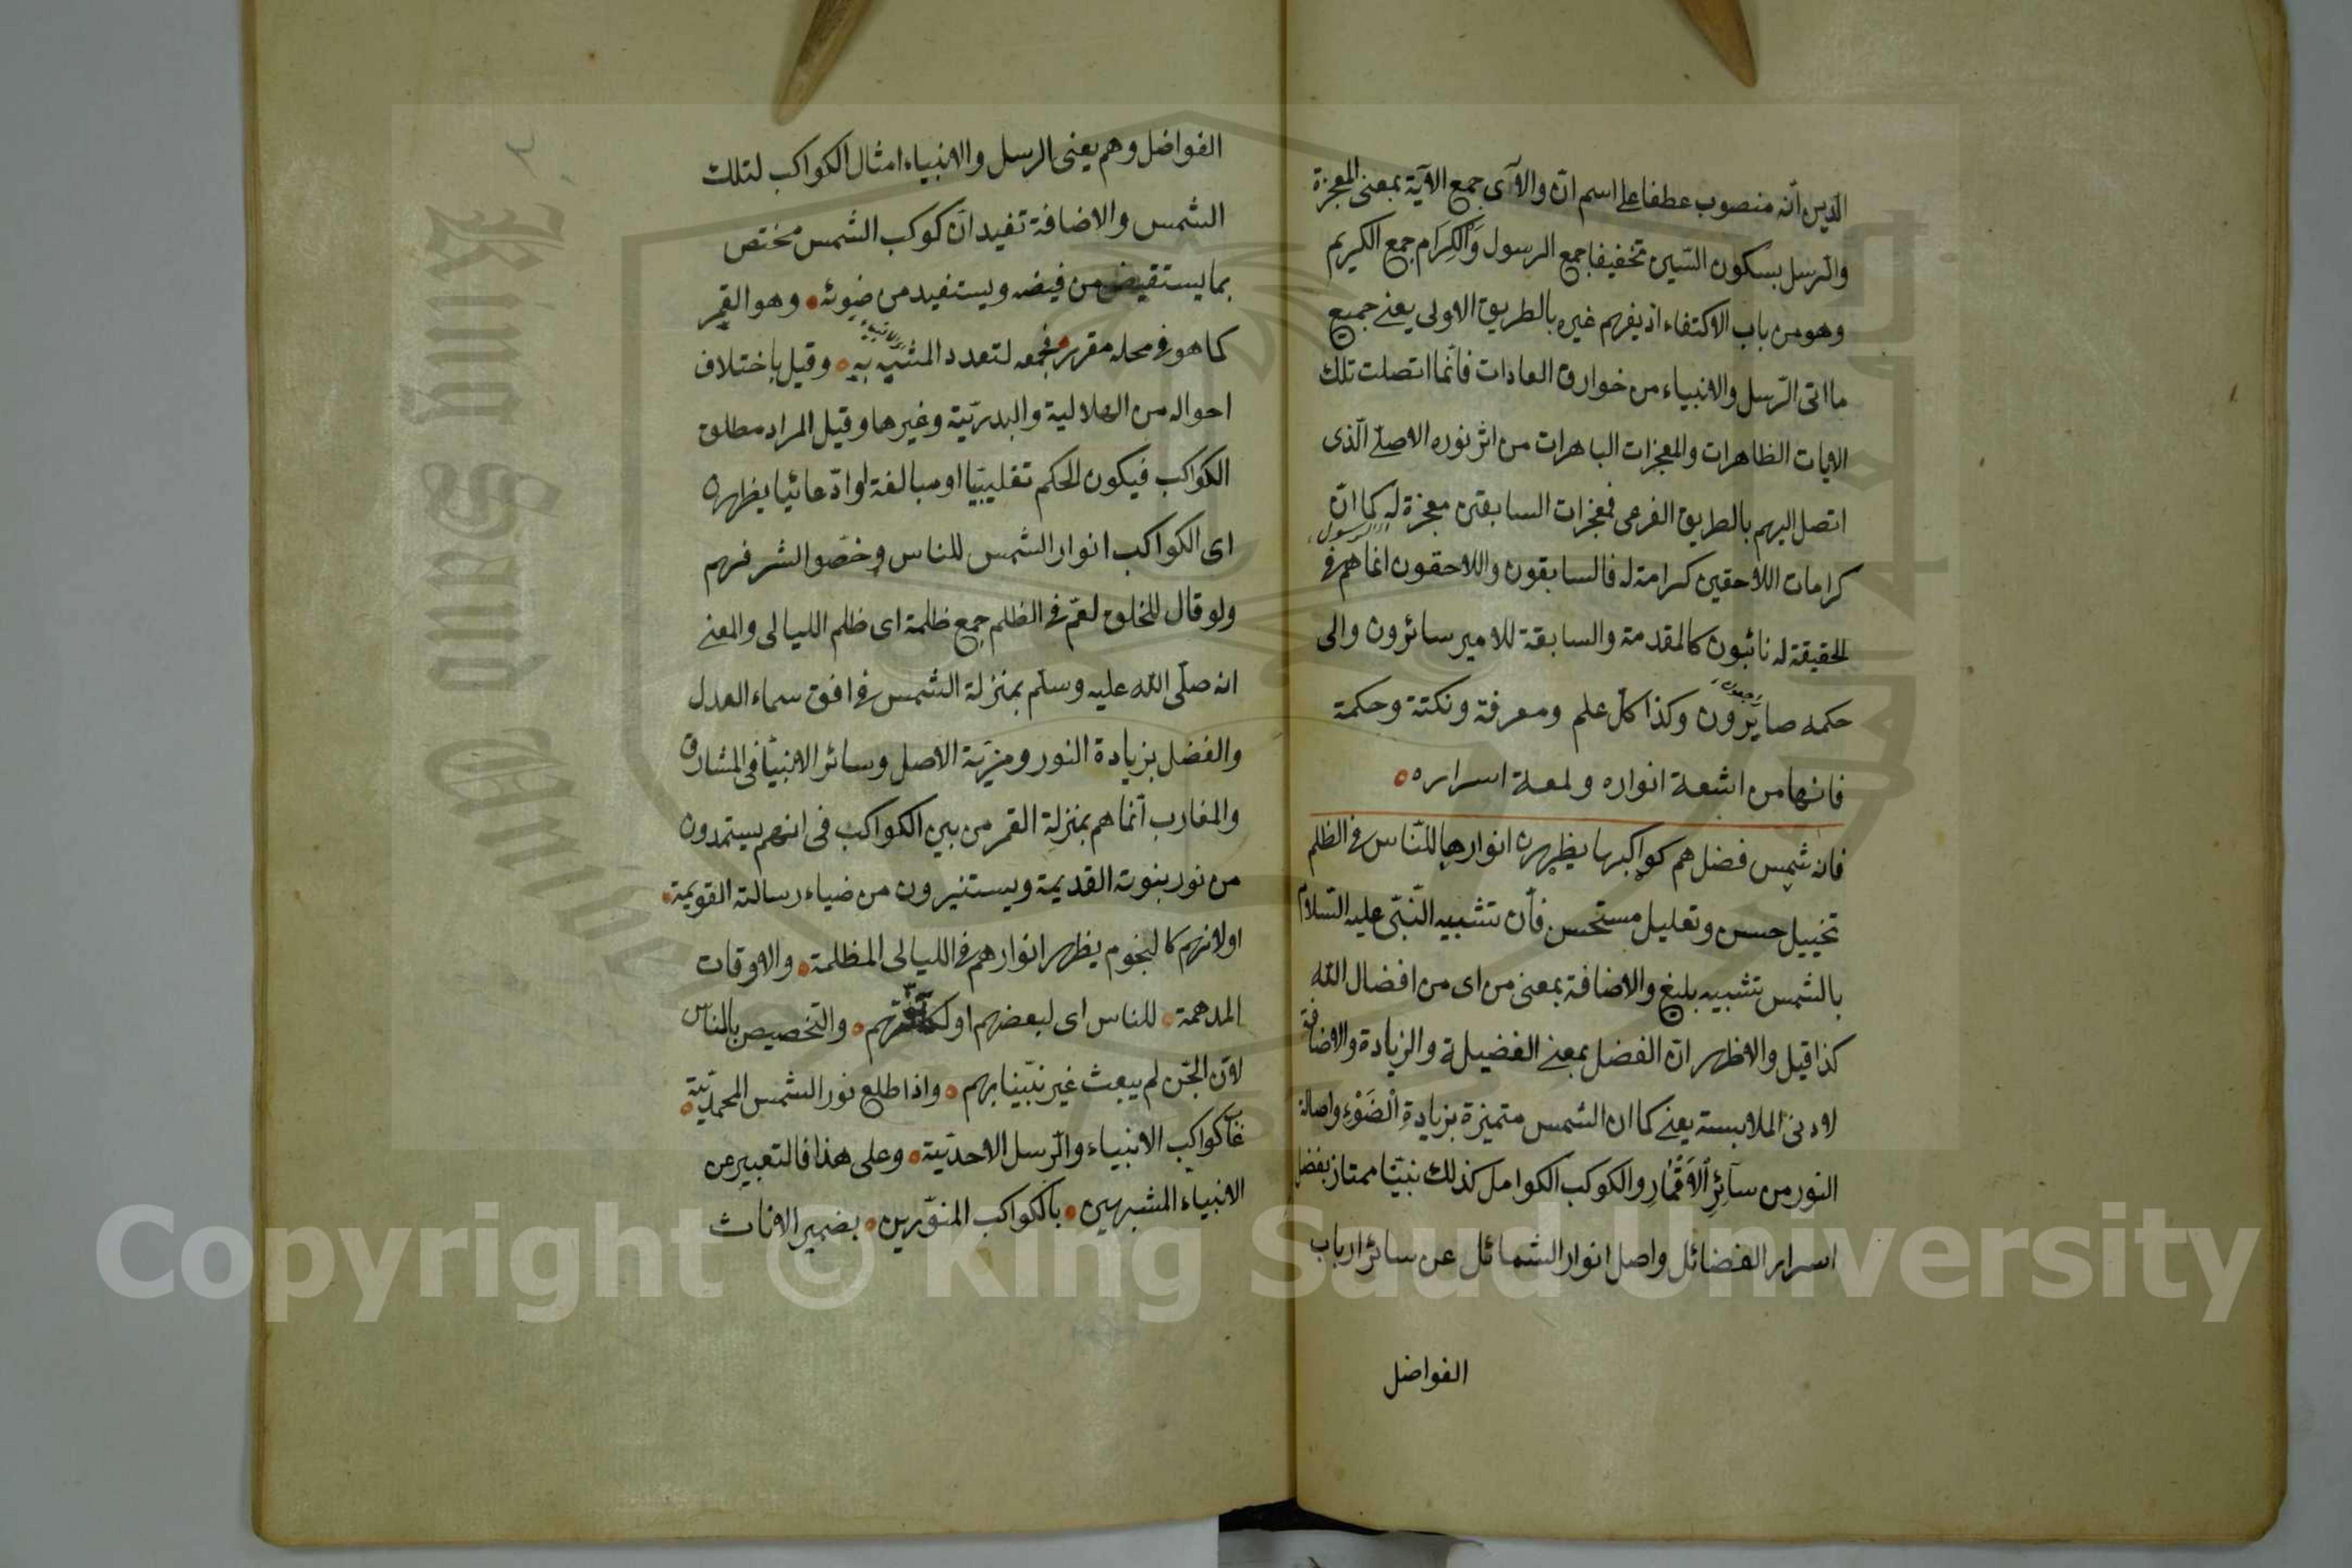 الدين انّه منصوب عطفا على اسم انّ والآى جمع الآية بمعنى المعجزة
والرسل بسكون السّين تخفيفا جمع الرسول وَالكِرَام جمع الكريم
وهو من باب الاكتفاء اذ يفهم غيره بالطريق الاولى يعنى جميع
ما اتى الرّسل والانبياء من خوارق العادات فانّما اتصلت تلك
الايات الظاهرات والمعجزات الباهرات من اثر نوره الاصلى الّذى
اتصل اليهم بالطريق الفرعى فمعجزات السابقين معجزة له كما انّ
كرامات اللاحقين كرامة له فالسابقون واللاحقون انما هم فى
الرسول
الحقيقة له نائبون كالمقدمة والسابقة للامير سائرون والى
حكمه صايرون وكذا كلّ علم ومعرفة ونكتة وحكمة
فانها من اشعة انواره ولمعة اسراره
فانه شمس فضل هم كواكبها يظهرن انوارها للنّاس فى الظلم
تخييل حسن وتعليل مستحسن فأن تشبيه النّبى عليه السّلام
بالشمس تشبيه بليغ والاضافة بمعنى من اى من افضال الله
كذا قيل والاظهر انّ الفضل بمعنى الفضيلة والزيادة والاضافة
لادنى الملابسة يعنى كما ان الشمس متميزة بزيادة الضَوْء واصالة
النور من سآئِرِ الاَقْمَارِ والكوكب الكوامل كذلك نبيّنا ممتاز بفضل
اسرار الفضائل واصل انوار الشمائل عن سائر ارباب
الفواضل
الفواضل وهم يعنى الرسل والانبياء امثال الكواكب لتلك
الشمس والاضافة تفيد انّ كوكب الشّمس مختص
بما يستفيض من فيضه ويستفيد من ضوئه وهو القمر
كما هو فى محله مقرر فجمعه لتعدد المشبه به وقيل باختلاف
احواله من الهلالية والبدريّة وغيرها وقيل المراد مطلق
الكواكب فيكون الحكم تغليبيّا او مبالغة او ادّعائيا يظهرن
اى الكواكب انوار الشمس للناس وخصّوا لشرفهم
ولو قال للخلق لعمّ فى الظلم جمع ظلمة اى ظلم الليالى والمعنى
انه صلّى الله عليه وسلّم بمنزلة الشمس فى افق سماء العدل
والفضل بزيادة النور ومزيّة الاصل وسائر الانبيآء فى المشارق
والمغارب انّما هم بمنزلة القمر من بين الكواكب فى انهم يستمدون
من نور بنوته القديمة ويستنيرون من ضياء رسالته القويمة
اولانهم كالنجوم يظهر انوارهم فى الليالى المظلمة والاوقات
المدهمة للناس اى لبعضهم او والتخصيص بالناس
لانّ الجنّ لم يبعث غير نبّينا بهم واذا طلع نور الشمس المحمديّة
غاب كواكب الانبياء والرّسل الاحديّة وعلى هذا فالتعبير عن
الانبياء المشبهين بالكواكب المنوّرين بضمير الاناث
King Saud University
Copyright © King Saud University